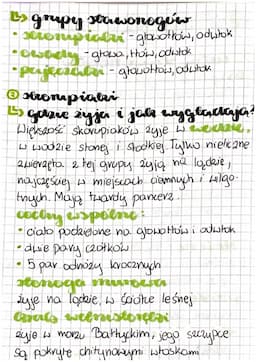 ↳ grupy stawonogów
• skorupiaki - głowotłów, odwłok
• owady - głowa, tłów, odwłok
• pajęczaki - głowotłów, odwłok
③ skorupiaki
↳ gdzie żyją i jak wyglądają?
Większość skorupiaków żyje w wodzie,
w wodzie słonej i słodkiej. Tylko nieliczne
zwierzęta z tej grupy żyją na lądzie,
najczęściej w miejscach ciemnych i wilgo-
tnych. Mają twardy pancerz.
cechy wspólne:
• ciało podzielone na głowotłów i odwłok
• dwie pary czółków
• 5 par odnóży krocznych
stonoga murowa
żyje na lądzie, w ściółce leśnej
krab wełnistoręki
żyje w morzu Bałtyckim, jego szczypce
są pokryte chitynowymi włoskami